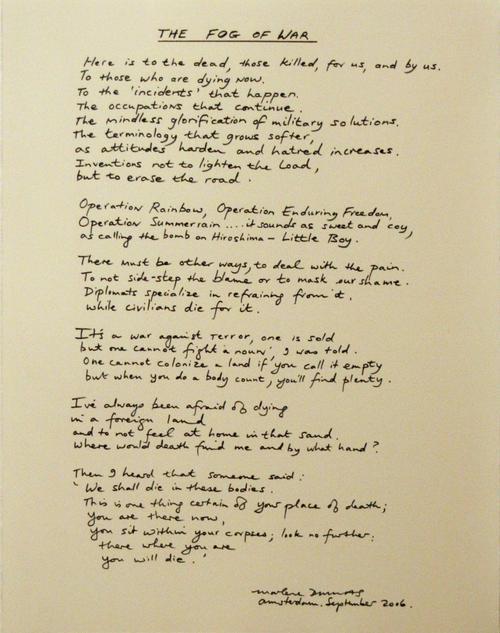 THE FOG OF WAR
Here is to the dead, those killed, for us, and by us.
To those who are dying now.
To the 'incidents' that happen.
The occupations that continue.
The mindless glorification of military solutions.
The terminology that grows softer,
as attitudes harden and hatred increases.
Inventions not to lighten the load,
but to erase the road.
Operation Rainbow, Operation Enduring Freedom,
Operation Summerrain .... it sounds as sweet and coy,
as calling the bomb on Hiroshima - Little Boy.
There must be other ways, to deal with the pain.
To not side-step the blame or to mask our shame.
Diplomats specialize in refraining from it.
while civilians die for it.
It's a war against terror, one is sold
but one cannot fight a noun, I was told.
One cannot colonize a land if you call it empty
but when you do a body count, you'll find plenty.
I've always been afraid of dying
in a foreign land
and to not feel at home in that sand.
Where would death find me and by what hand?
Then I heard that someone said:
'We shall die in these bodies.
This is one thing certain of your place of death;
you are there now,
you sit within your corpses; look no further:
there where you are
you will die.'
Marlene Dumas
Amsterdam. September 2006.